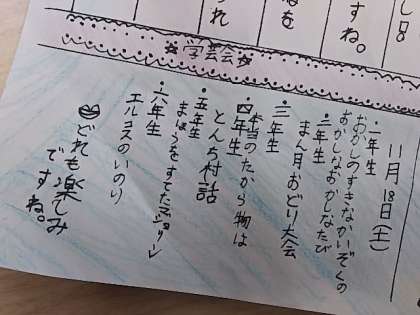 し日
すね。
なを
られ
☆学芸会☆
11月18日(土)
・一年生
おかしのすきなかいぞくの
おかしなおかしなたび
・二年生
まん月おどり大会
・三年生
本当のたから物は
・四年生
とんち村話
・五年生
まほうをすてたマジョリン
・六年生
エルコスのいのり
どれも楽しみ
ですね。